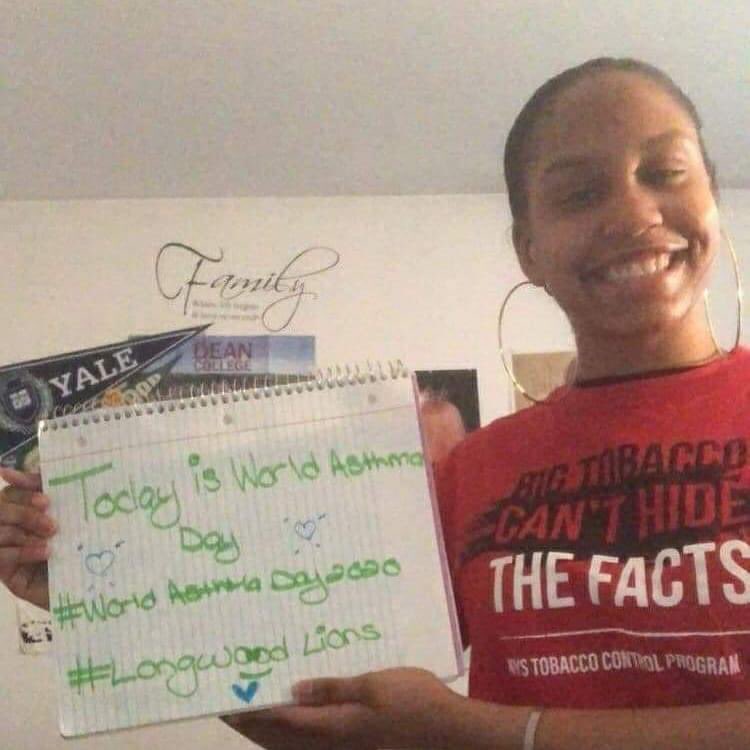 Family
YALE
DEAN
COLLEGE
Today is World Asthma
Day
#World Asthma Day2020
#Longwood Lions
BIG TOBACCO
CAN'T HIDE
THE FACTS
NYS TOBACCO CONTROL PROGRAM